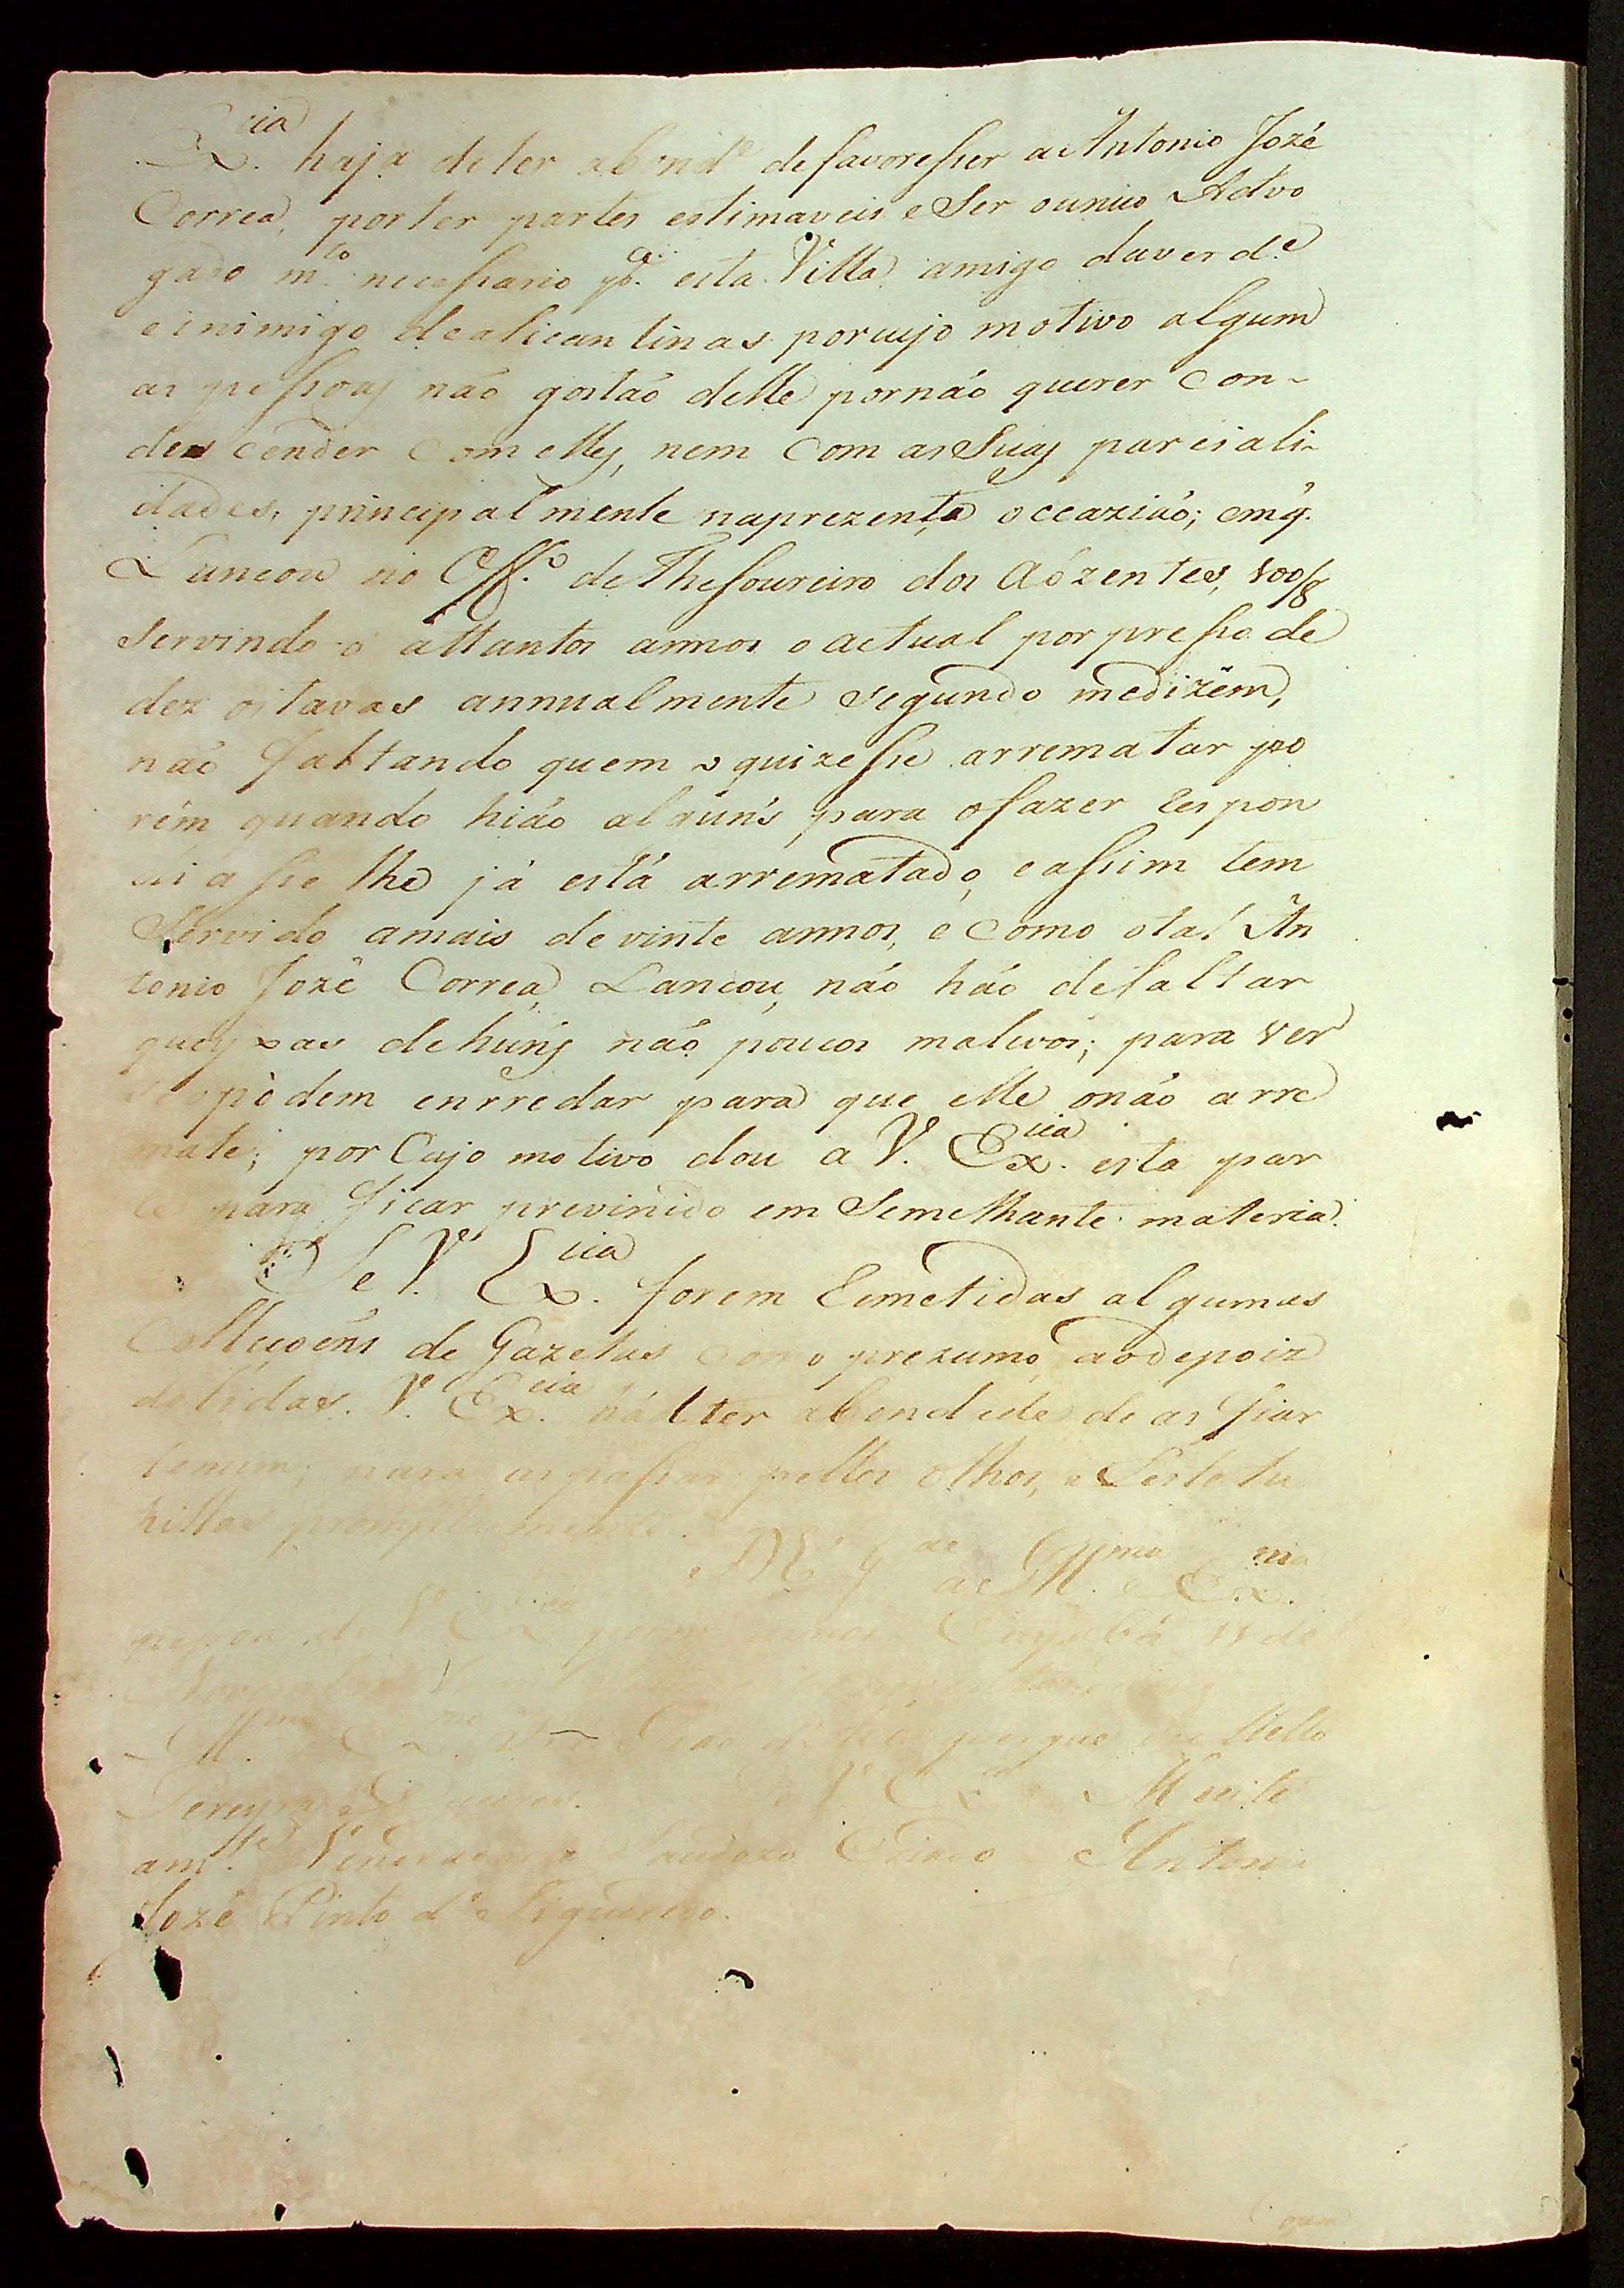 Ex.cia haja de ter abond.e de favoresser a Antonio Jozé
Correa, por ter partes estimaveis e Ser o unico Advo
gado m.to necessario p.a esta Villa, amigo da verd.e
e inimigo de alicantinas por cujo motivo algum
as pessoas não gostão delle por não querer con-
descender com elles, nem com as Suas parciali-
dades, principalmente na prezente occazião; em q.
Lancou no Off.o de Thesoureiro dos Aózentes, 100/8
servindo-o a ttantos annos o actual por presso de
dez oitavas annualmente segundo me dizem,
não faltando quem o quizesse arrematar po
rém quando hião alguns para o fazer Respon
diasse lhe já está arrematado, e assim tem
Servido a mais de vinte annos, e como o tal An
tonio Jozé Correa, Lancou, não hão de faltar
queyxas de huns não poucos malevos; para ver
pódem enrredar para que elle o não arre
mate; por Cujo motivo dou a V. Ex.cia esta par
para ficar previnido em Semelhante materia.
Se V. Ex.cia forem Remetidas algumas
Collecoens de Gazetas como prezumo, ao depois
de lidas. V. Ex.cia há d ter abondade de as fiar
de mim; para as passar pellos olhos, e Restetu
hillas promptamente.
D.s g.de a Ill.ma e Ex.ma
pessoa de V. Ex.cia por m. annos. Cuyabá 11 de
Novembro
Ill.mo Ex.mo Snr. João d' Albuquerque de Mello
Pereyra e Caceres. De V. Ex.cia Muito
am.te Venerador e Criado Antonio
Jozé Pinto d' Figueiredo.